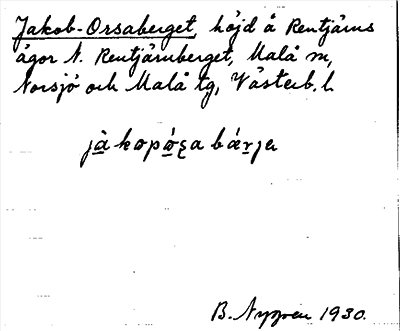 Jakob-Orsaberget, höjd å Rentjärns
ägor N. Rentjärnberget, Malå sn,
Norsjö och Malå tg, Västerb. l.
jàkopó̱ʂa bǽrjer
B. Nygren 1930.